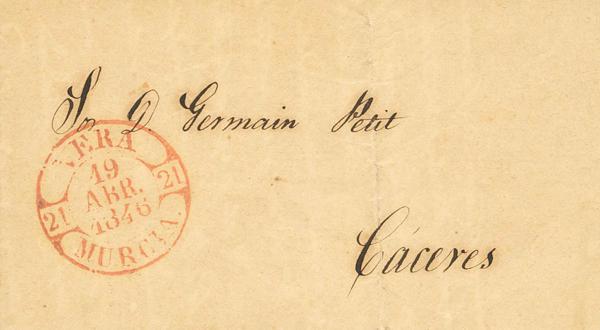 Sr. D. Germain Petit
VERA
19
ABR.
1846
21
21
MURCIA.
Cáceres